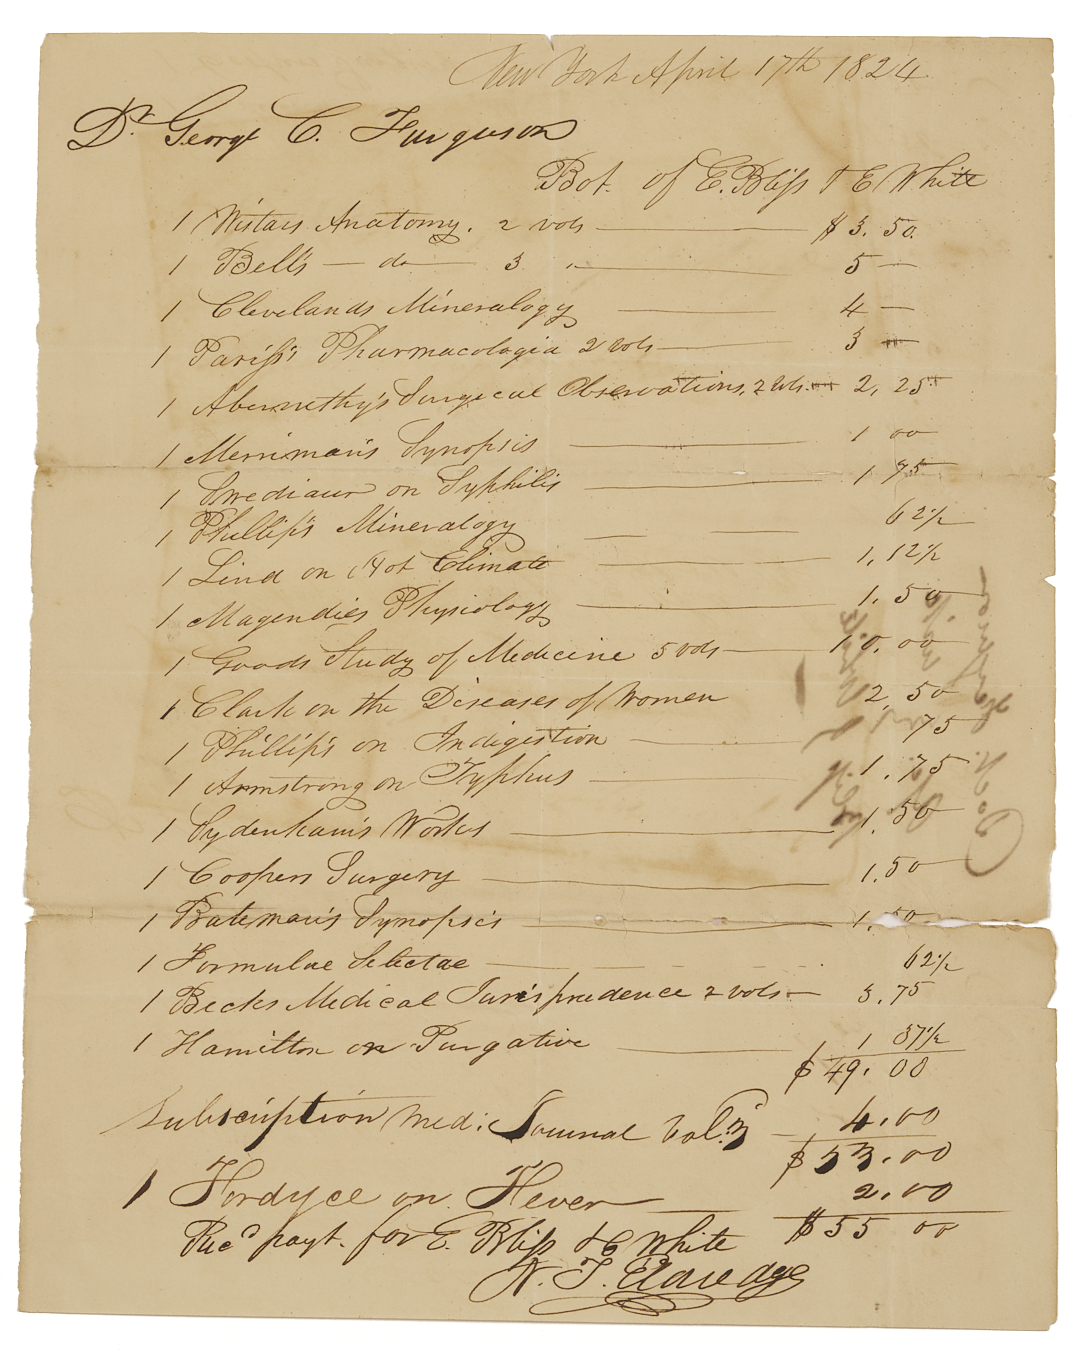 New York April 17th 1824
Dr. George C. Furguson
Bot. of E. Bliss & E White
1 Wistars Anatomy. 2 vols — $3.50
1 Bell's — do — 3 " — 5 —
1 Clevelands Mineralogy — 4 —
1 Pariss's Pharmacologia 2 vols — 3 —
1 Abernethy's Surgical Observations, 2 vols. — 2,25
1 Merriman's Synopsis — 1 00
1 Swediaur on Syphilis — 1 75
1 Phillip's Mineralogy — 62½
1 Lind on Hot Climate — 1,12½
1 Magendies Physiology — 1.50
1 Goods Study of Medicine 5 vols — 10.00
1 Clark on the Diseases of Women 2,50
1 Phillip's on Indigestion — 75
1 Armstrong on Typhus — 1.75
1 Sydenham's Works — 1.50
1 Coopers Surgery — 1.50
1 Bateman's Synopsis — 1.50
1 Formulae Selectae — 62½
1 Becks Medical Jurisprudence 2 vols. — 3.75
1 Hamilton on Purgative — 1 37½
$49.00
Subscription Med: Journal Vol. 3 — 4.00
$53.00
1 Fordyce on Fever — 2.00
$55 00
Rec'd payt. for E. Bliss & E White